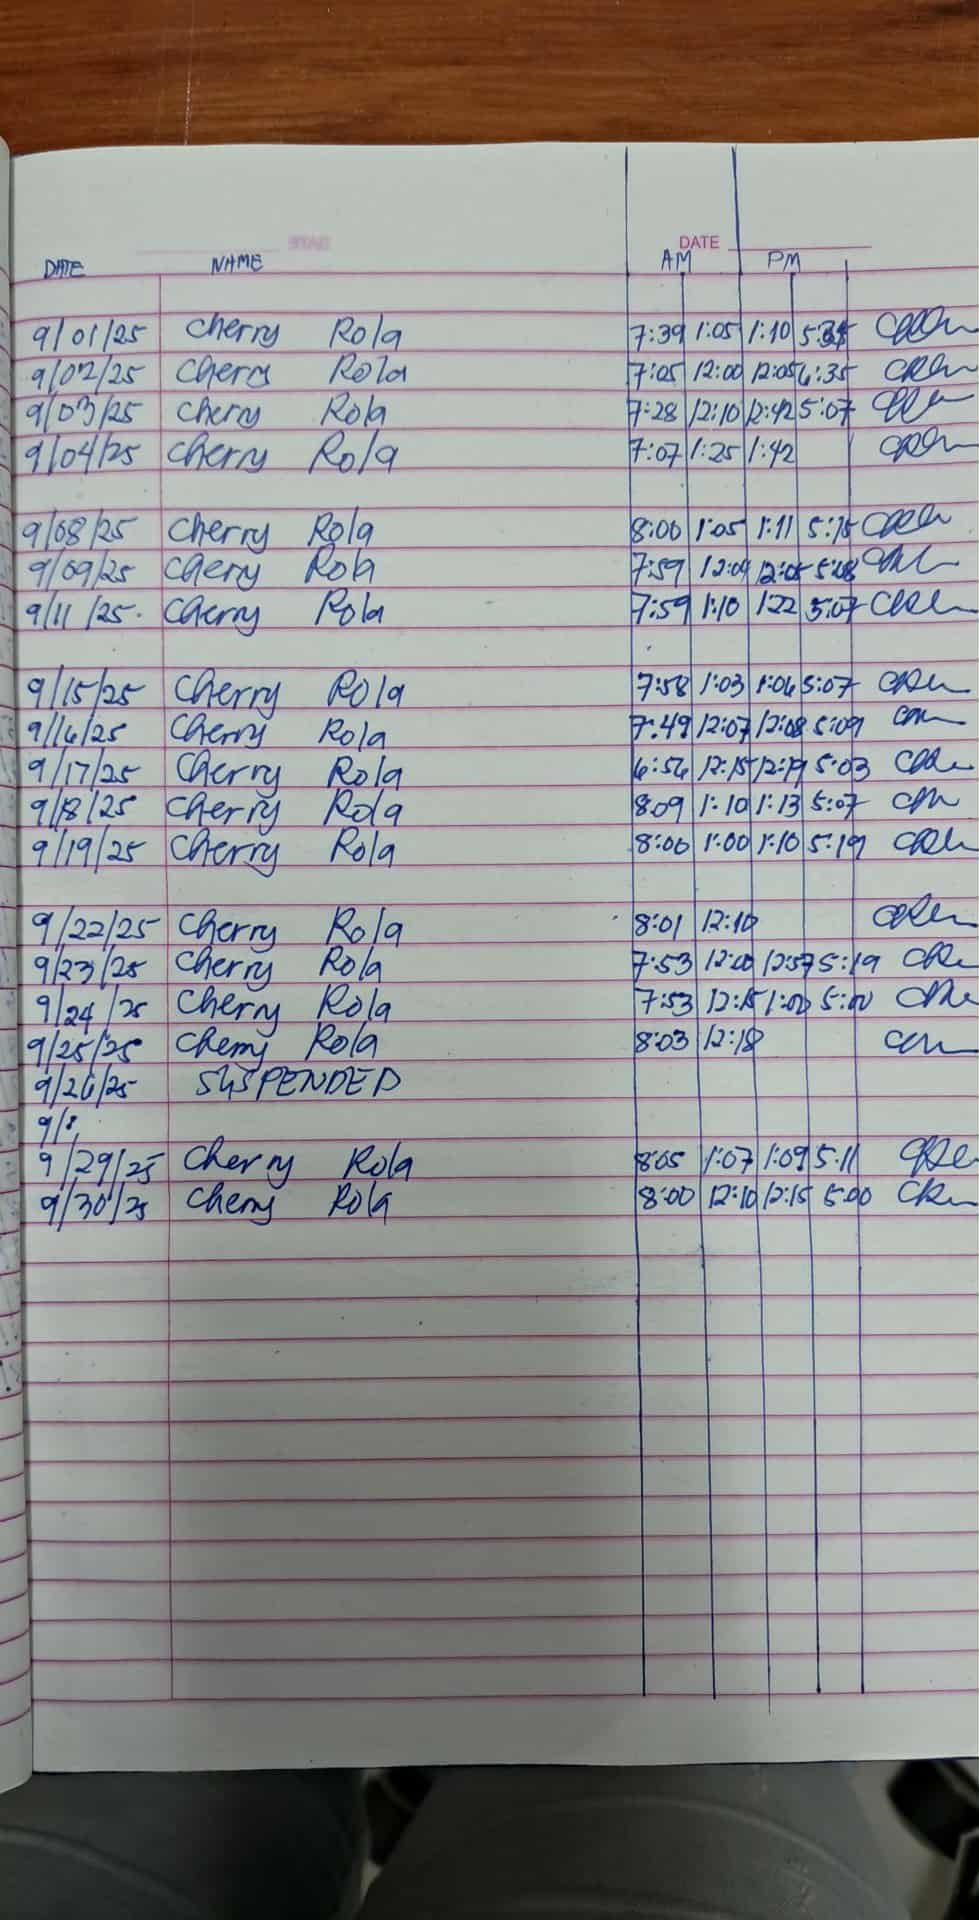 DATE
DATE NAME AM PM
9/01/25 Cherry Rola 7:39 1:05 1:10
9/02/25 Cherry Rola 7:05 12:00 12:05 6:35
9/03/25 Cherry Rola 7:28 12:10 12:42 5:07
9/04/25 Cherry Rola 7:07 1:25 1:42
9/08/25 Cherry Rola 8:00 1:05 1:11 5:15
9/09/25 Cherry Rola 7:59 12:04 12:05 5:08
9/11/25. Cherry Rola 7:59 1:10 1:22 5:07
9/15/25 Cherry Rola 7:58 1:03 1:06 5:07
9/16/25 Cherry Rola 7:49 12:07 12:08 5:09
9/17/25 Cherry Rola 6:56 12:15 12:19 5:03
9/18/25 Cherry Rola 8:09 1:10 1:13 5:07
9/19/25 Cherry Rola 8:00 1:00 1:10 5:19
9/22/25 Cherry Rola 8:01 12:10
9/23/25 Cherry Rola 7:53 12:00 12:57 5:19
9/24/25 Cherry Rola 7:53 12:15 1:00 5:00
9/25/25 Cherry Rola 8:03 12:18
9/26/25 SUSPENDED
9/
9/29/25 Cherry Rola 8:05 1:07 1:09 5:11
9/30/25 Cherry Rola 8:00 12:10 12:15 5:00